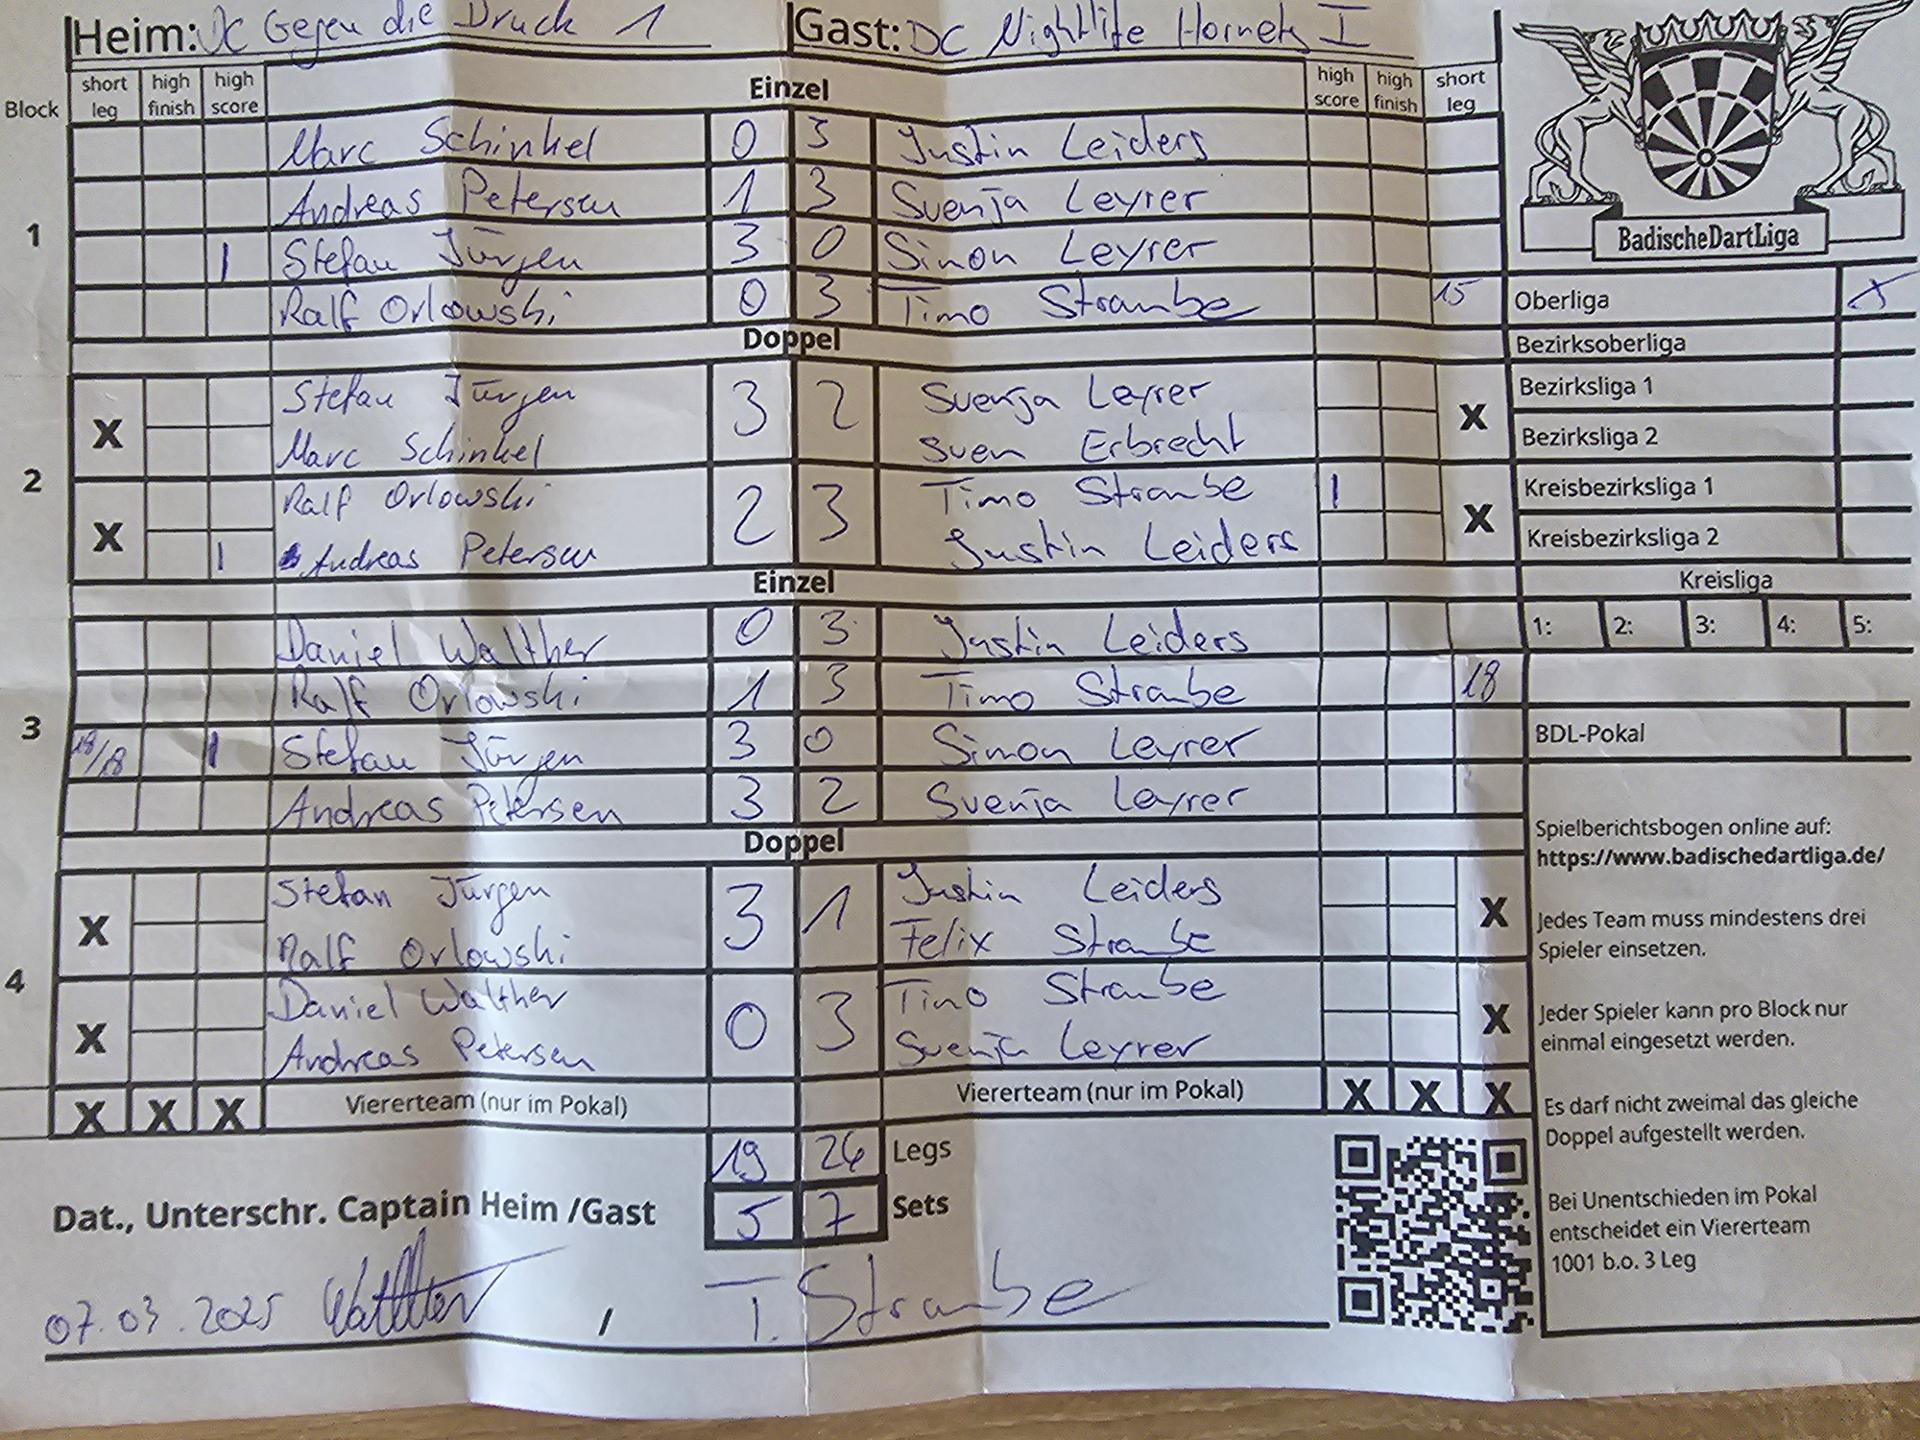 Heim: DC Gegen die Druck 1 Gast: DC Nightlife Hornets I
Block short leg high finish high score Einzel high score high finish short leg
1
Marc Schinkel 0 3 Justin Leiders
Andreas Petersen 1 3 Svenja Leyrer
1 Stefan Jürgen 3 0 Simon Leyrer
Ralf Orlowski 0 3 Timo Straube 15
Doppel
2
X Stefan Jürgen 3 2 Svenja Leyrer X
Marc Schinkel Sven Erbrecht
X Ralf Orlowski 2 3 Timo Straube 1 X
1 Andreas Petersen Justin Leiders
Einzel
3
Daniel Walther 0 3 Justin Leiders
Ralf Orlowski 1 3 Timo Straube 18
18/18 1 Stefan Jürgen 3 0 Simon Leyrer
Andreas Petersen 3 2 Svenja Leyrer
Doppel
4
X Stefan Jürgen 3 1 Justin Leiders X
Ralf Orlowski Felix Straube
X Daniel Walther 0 3 Timo Straube X
Andreas Petersen Svenja Leyrer
X X X Viererteam (nur im Pokal) Viererteam (nur im Pokal) X X X
19 26 Legs
5 7 Sets
Dat., Unterschr. Captain Heim /Gast
07.03.2025 Walther / T. Straube
BadischeDartLiga
Oberliga X
Bezirksoberliga
Bezirksliga 1
Bezirksliga 2
Kreisbezirksliga 1
Kreisbezirksliga 2
Kreisliga
1: 2: 3: 4: 5:
BDL-Pokal
Spielberichtsbogen online auf:
https://www.badischedartliga.de/
Jedes Team muss mindestens drei
Spieler einsetzen.
Jeder Spieler kann pro Block nur
einmal eingesetzt werden.
Es darf nicht zweimal das gleiche
Doppel aufgestellt werden.
Bei Unentschieden im Pokal
entscheidet ein Viererteam
1001 b.o. 3 Leg